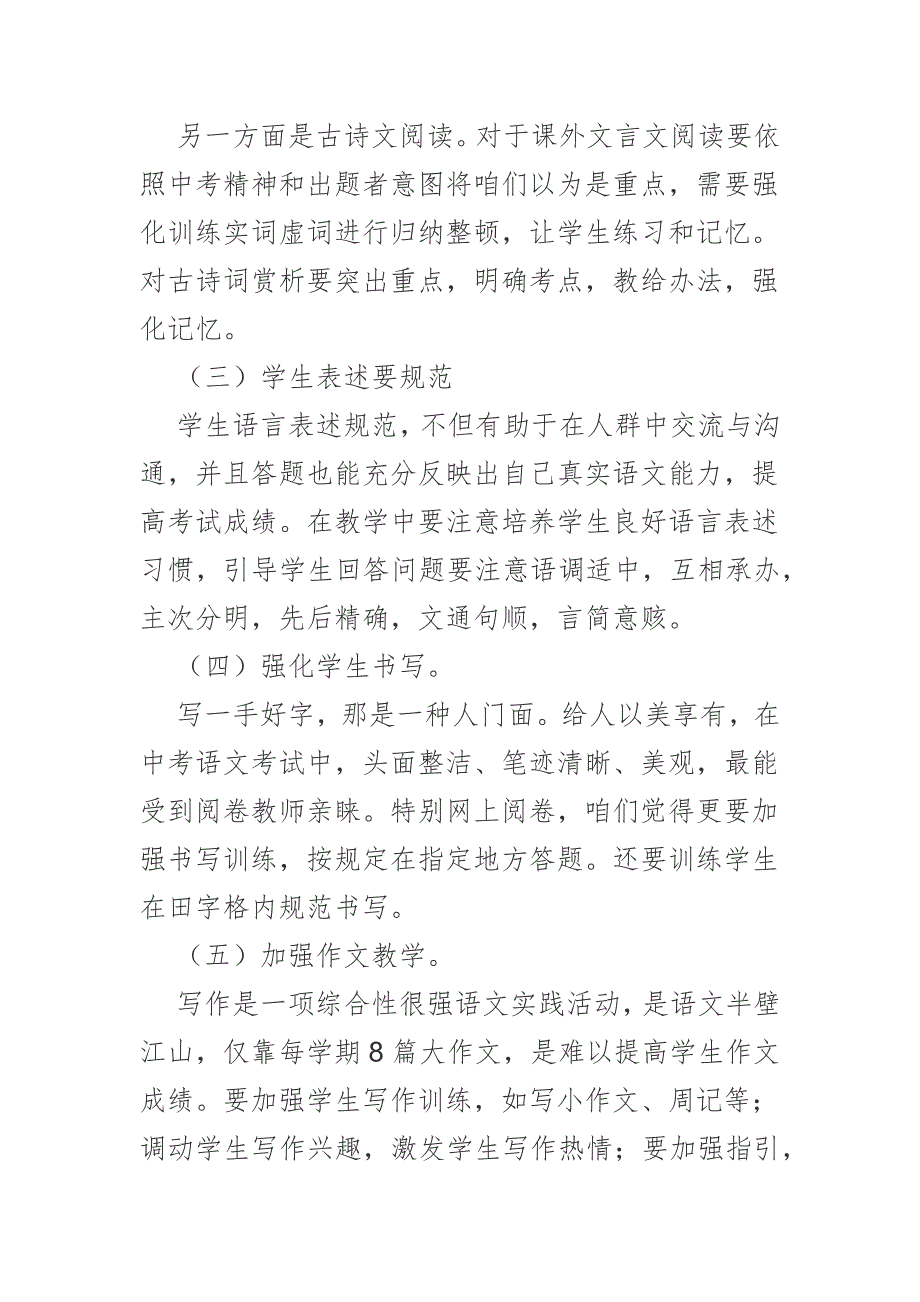 另一方面是古诗文阅读。对于课外文言文阅读要依
照中考精神和出题者意图将咱们以为是重点，需要强
化训练实词虚词进行归纳整顿，让学生练习和记忆。
对古诗词赏析要突出重点，明确考点，教给办法，强
化记忆。
（三）学生表述要规范
学生语言表述规范，不但有助于在人群中交流与沟
通，并且答题也能充分反映出自己真实语文能力，提
高考试成绩。在教学中要注意培养学生良好语言表述
习惯，引导学生回答问题要注意语调适中，互相承办，
主次分明，先后精确，文通句顺，言简意赅。
（四）强化学生书写。
写一手好字，那是一种人门面。给人以美享有，在
中考语文考试中，头面整洁、笔迹清晰、美观，最能
受到阅卷教师亲睐。特别网上阅卷，咱们觉得更要加
强书写训练，按规定在指定地方答题。还要训练学生
在田字格内规范书写。
（五）加强作文教学。
写作是一项综合性很强语文实践活动，是语文半壁
江山，仅靠每学期8篇大作文，是难以提高学生作文
成绩。要加强学生写作训练，如写小作文、周记等；
调动学生写作兴趣，激发学生写作热情；要加强指引，